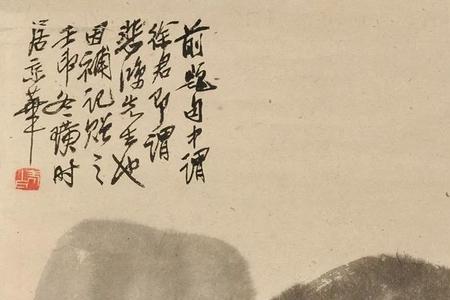 前題白中謂
徐君即謂
悲鴻先生也
因補記贈之
壬申冬璜时
居京華